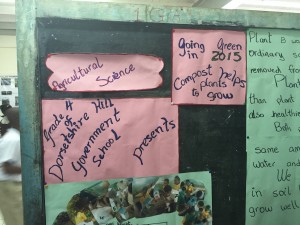 Agricultural
Science
Grade 4
of
Dorsetshire Hill
Government
School
presents
Going Green
in 2015
Compost helps
plants
to grow
Plant B w
ordinary s
removed from
Plant
than plant
also healthie
Both
same am
water and
We
in soil
grow well